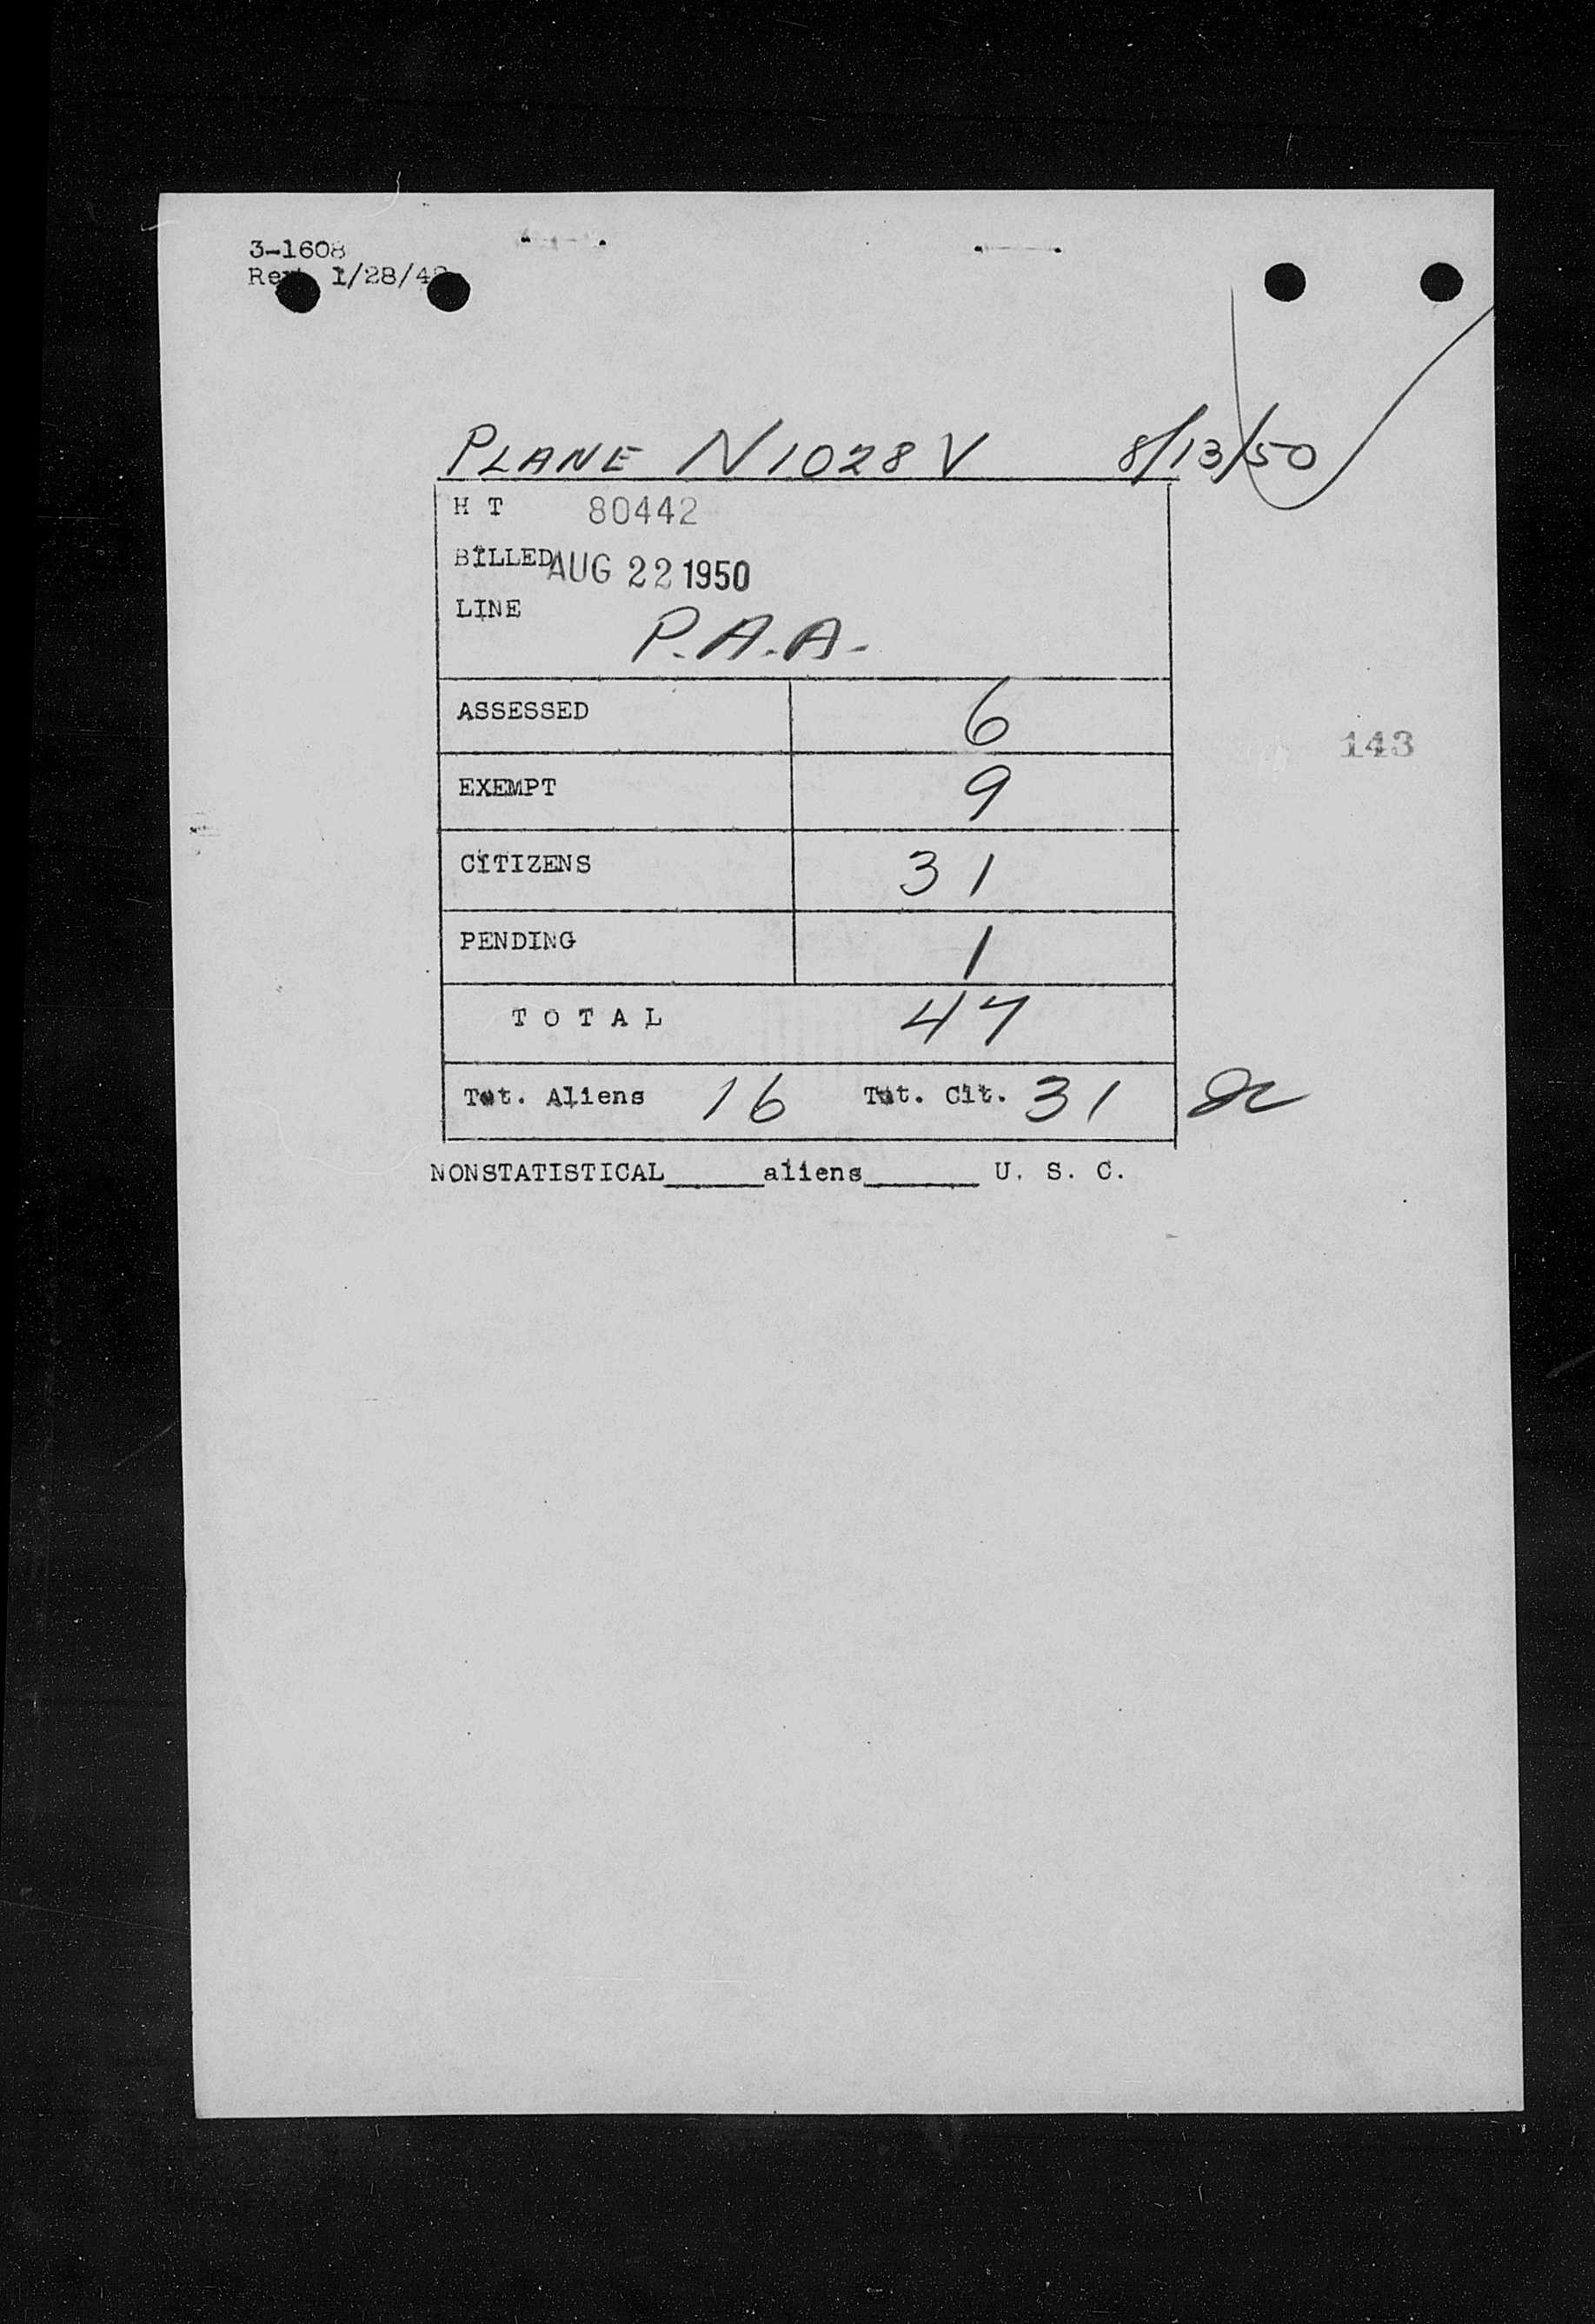 3-1608
1/28/4
PLANE N1028V 8/13/50
H T 80442
BILLED AUG 22 1950
LINE
P.A.A.
ASSESSED 6
143
EXEMPT 9
CITIZENS 31
PENDING 1
TOTAL 47
Tot. Aliens 16 Tot. Cit. 31
NONSTATISTICAL_____aliens______ U. S. C.